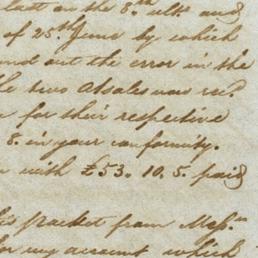 last on the 8.th ult.o and
of 25th June by which
out the error in the
two Absales now rec.d
for their respective
8. in your conformity.
with £53. 10. 5. paid
packet from Mess.rs
for my account which